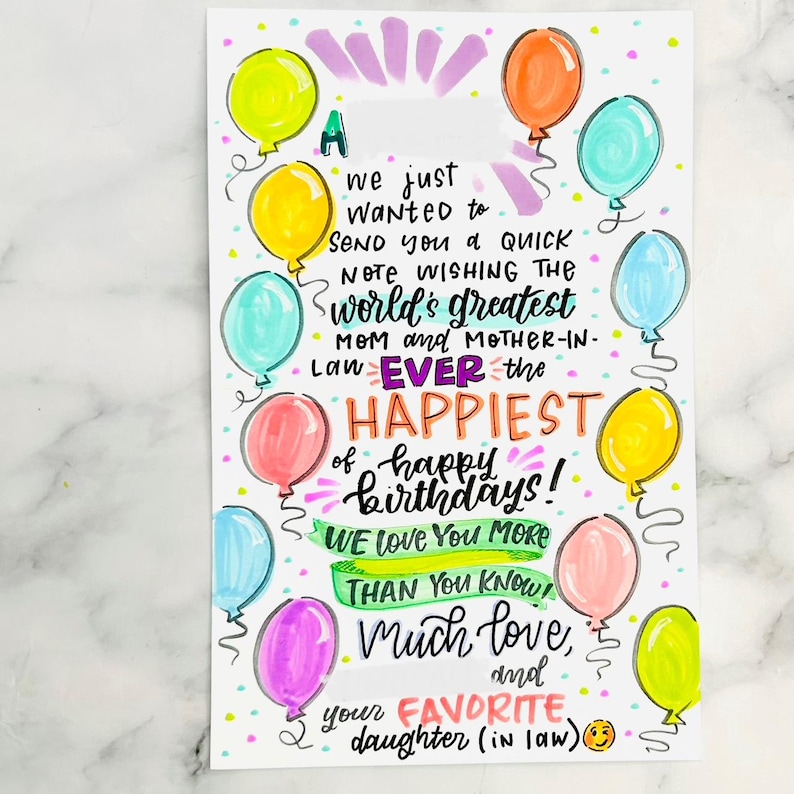 A
we just
wanted to
send you a quick
note wishing the
world's greatest
mom and mother-in-
law EVER the
HAPPIEST
of happy
birthdays!
WE love You MORE
THAN You KNOW!
Much love,
and
your FAVORITE
daughter (in law)